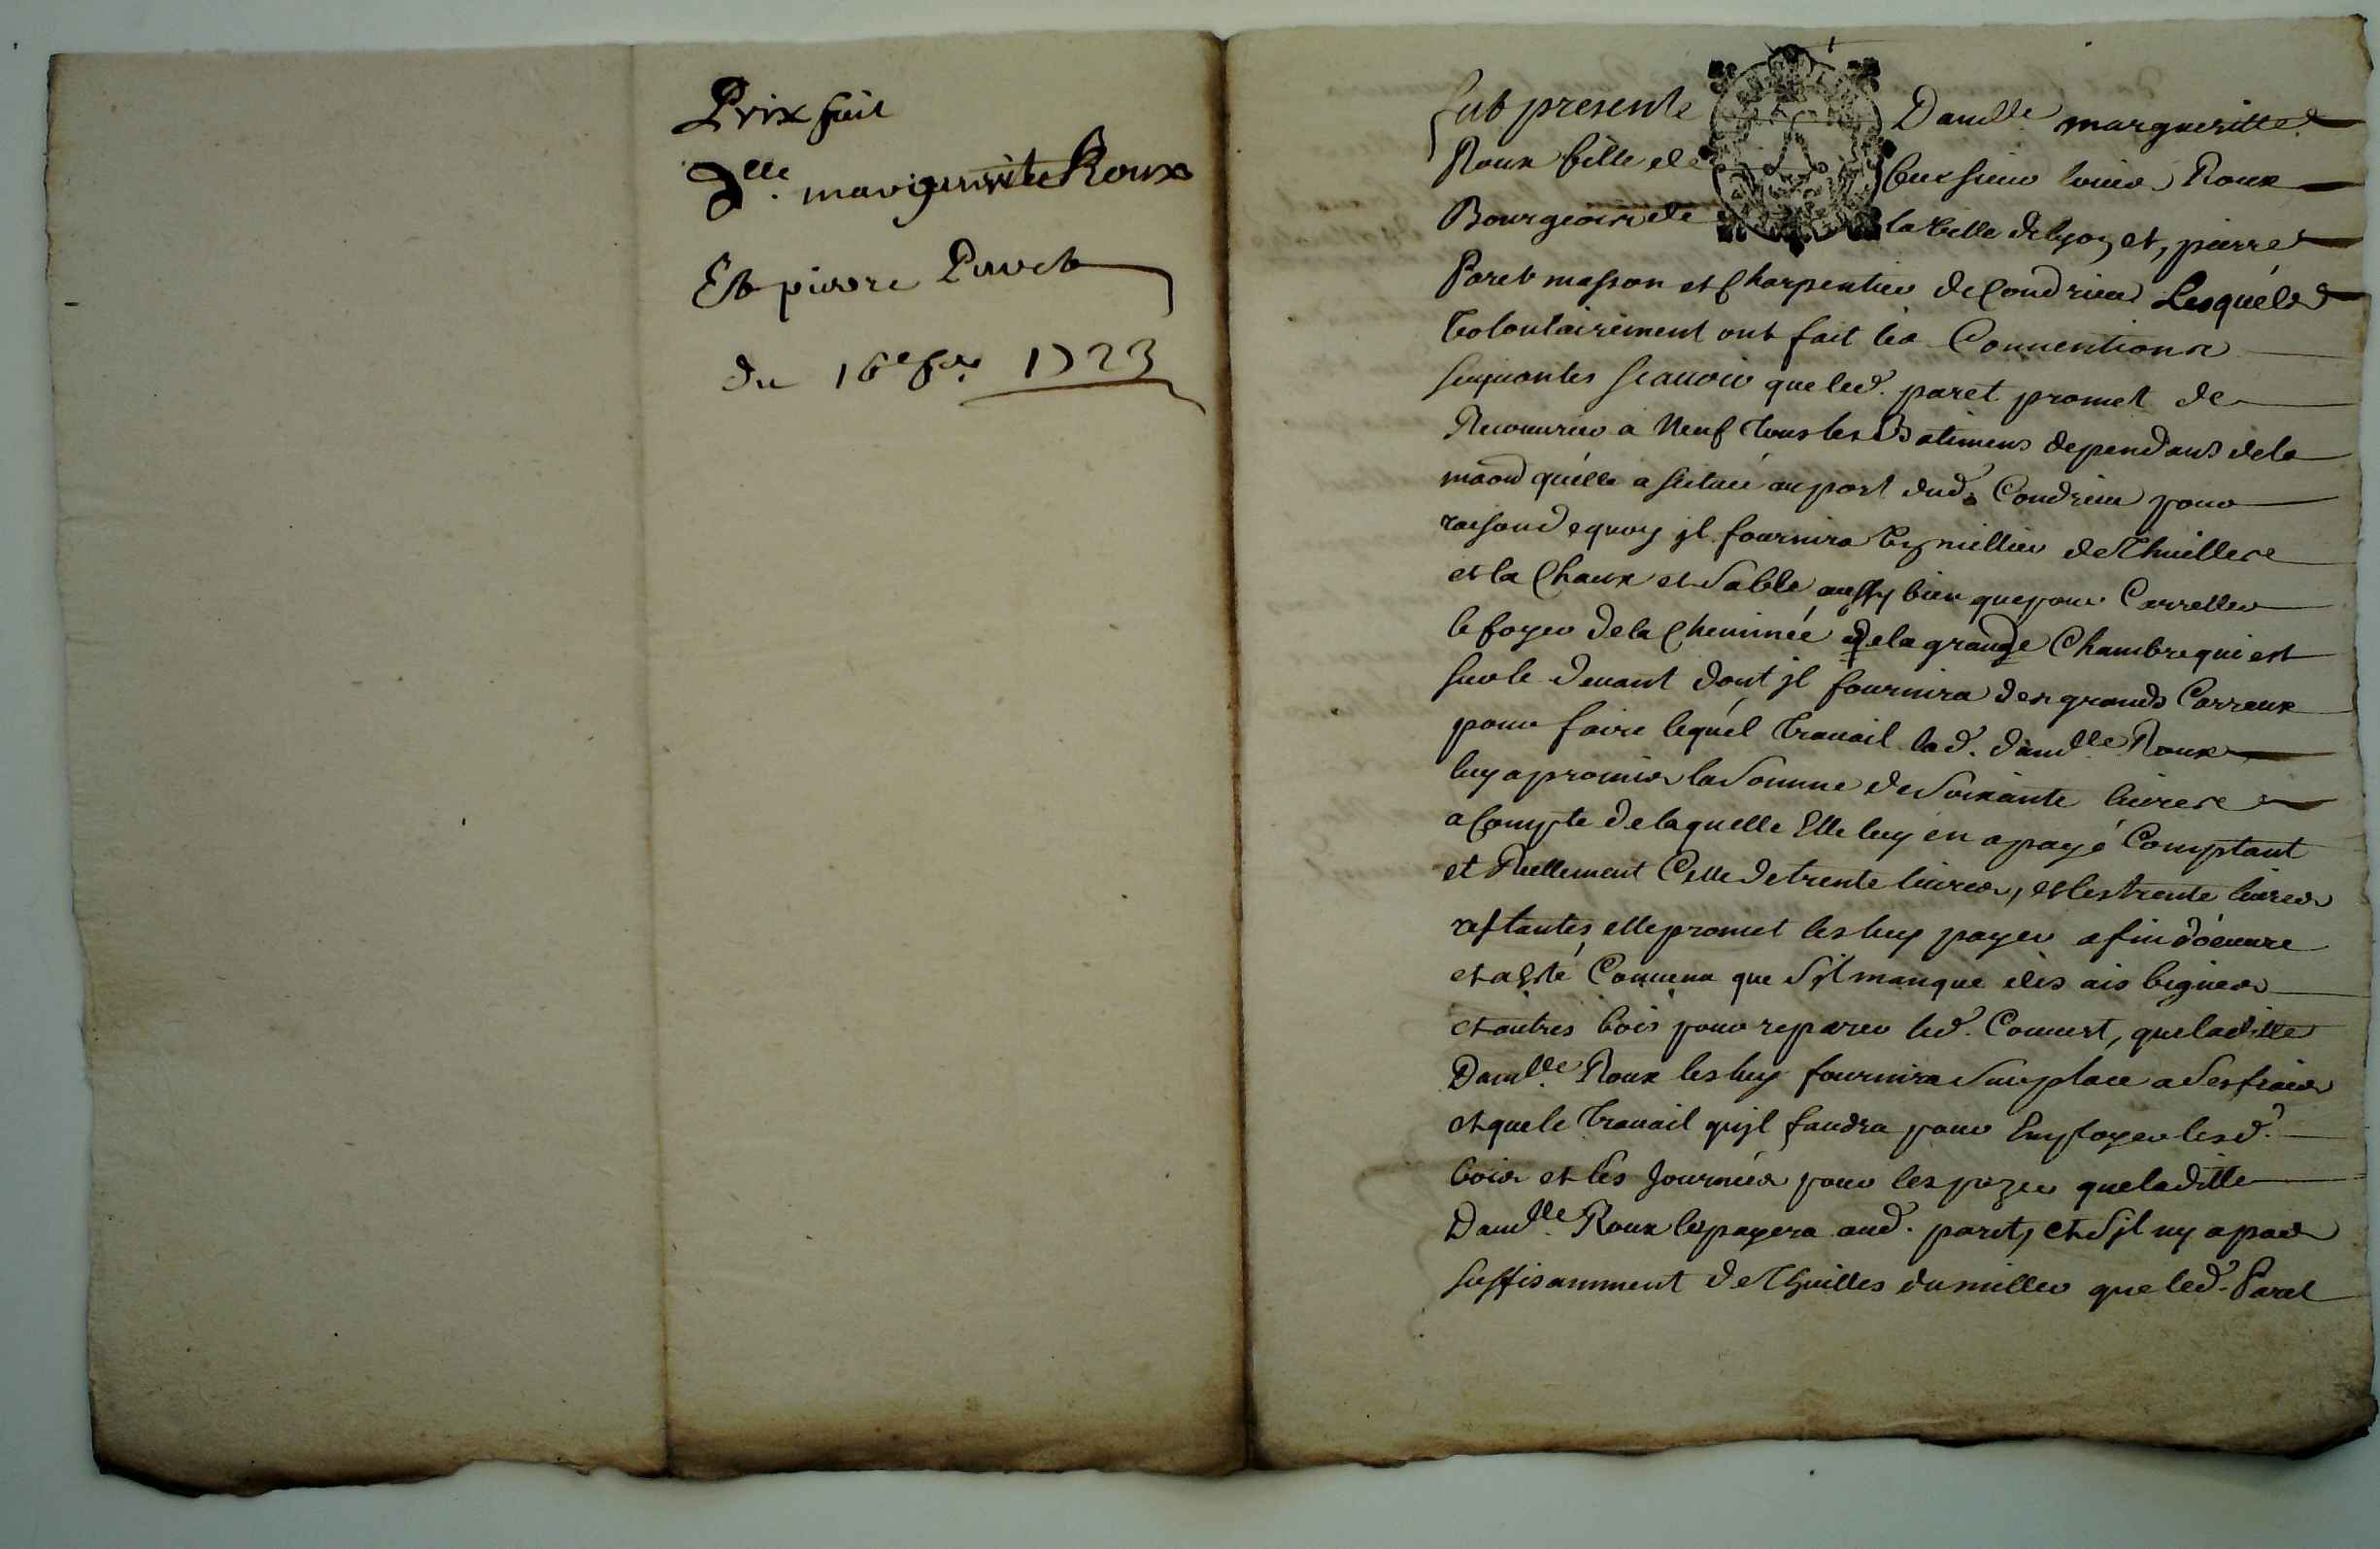 Prix fait
Dlle. marguerite Roux
Et pierre Paret
du 16e 8bre. 1723
fut presente Damlle marguerittte
Roux fille de feu sieur louis Roux
Bourgeois de la ville de lyon et, pierre
Paret masson et Charpentier de Condrieu Lesquéls
volontairement ont fait les Conuentions
suiuantes scauoir que led. paret promet de
Recouurir a Neuf tous les Batimens dependans dela
maon quélle a scitueé au port dud. Condrieu pour
raison dequoy jl fournira vn millier de Thuilles
et la Chaux et sable aussy bien que pour Carreller
le foyer dela Cheminéé dela grande Chambre qui est
sur le deuant dont jl fournira des grands Carreaux
pour faire lequél trauail lad. damlle Roux
luy a promis la somme de soixante liures
a Compte de laquelle Elle luy en a payé Comptant
et Réellement Celle de trente liures, et les trente liures
restantes elle promet les luy payer a fin d'oeuure
et a esté Conuenu que sjl manque des ais
et autres bois pour reparer led. Couuert, que laditte
Damlle. Roux les luy fournira sur place a ses frais
et que le trauail qujl faudra pour Employer lesd.
bois et les Journées pour les pozer que laditte
Damlle. Roux le payera aud. paret, et sjl ny a pas
suffisamment de Thuilles du millier que led. Paret